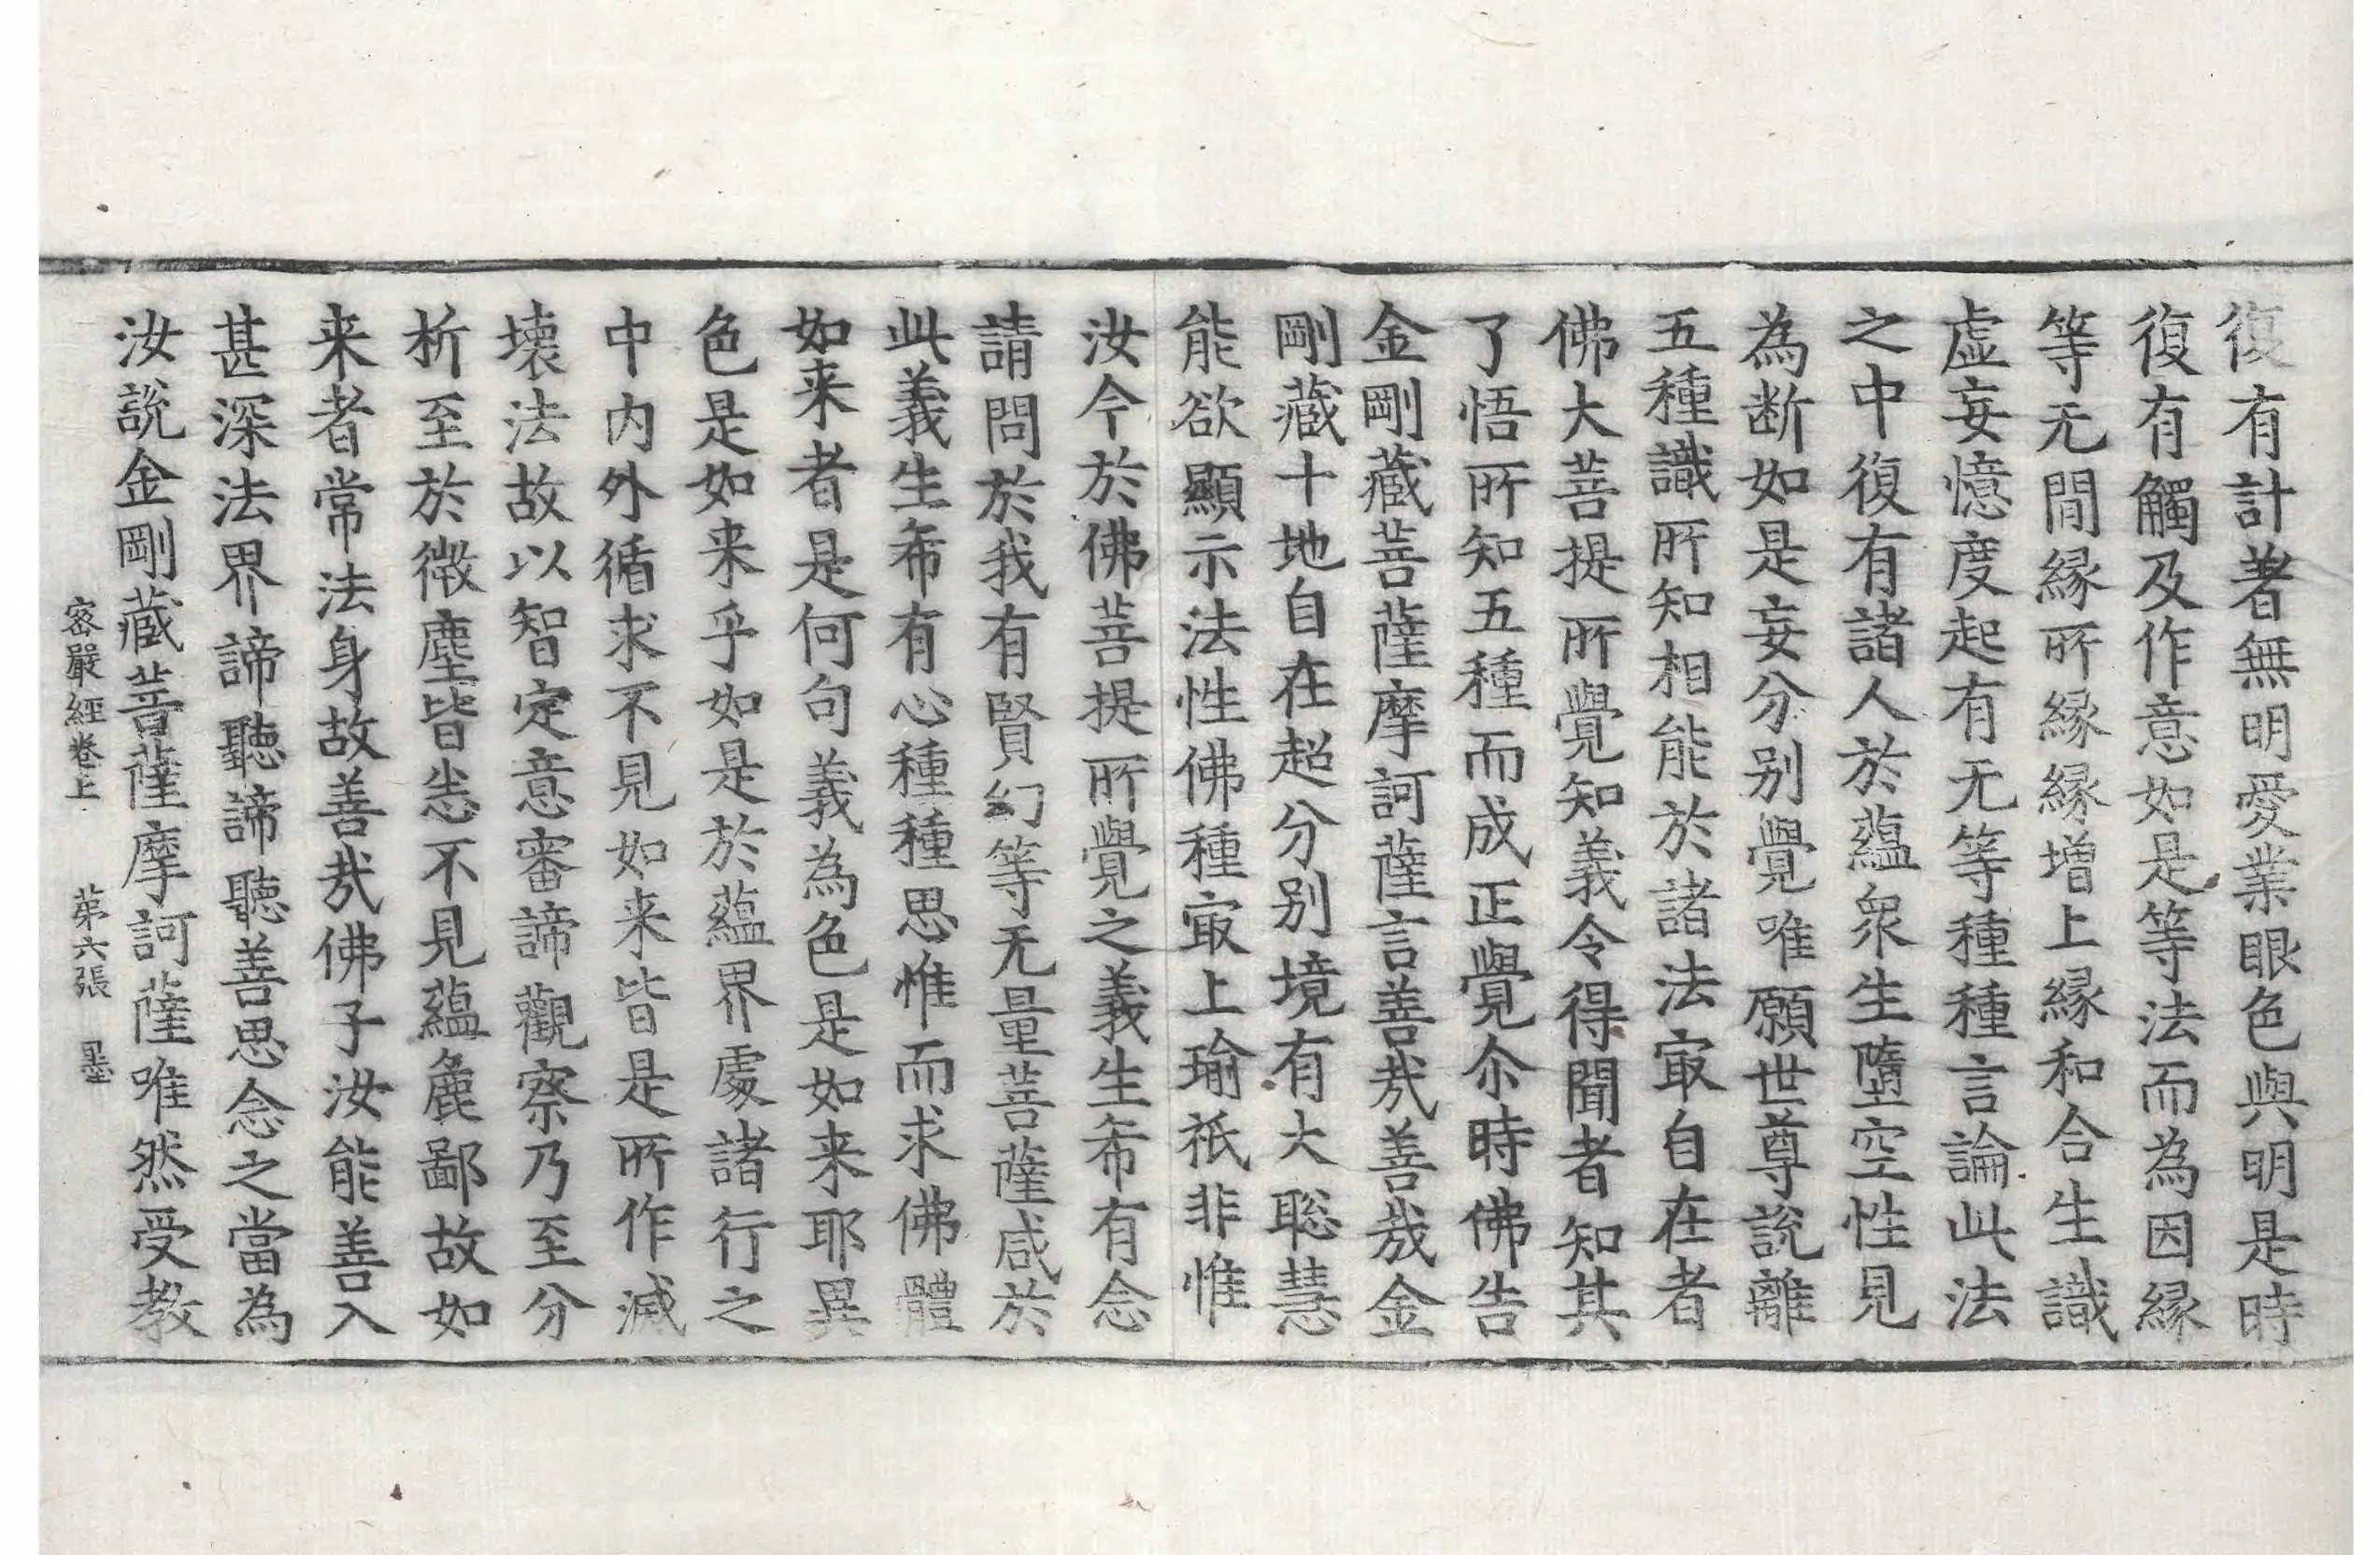 復有計著無明愛業眼色與明是時
復有觸及作意如是等法而為因縁
等无閒縁所縁縁增上縁和合生識
虛妄憶度起有无等種種言論此法
之中復有諸人於蘊衆生墮空性見
為断如是妄分别覺唯願世尊說離
五種識所知相能於諸法㝡自在者
佛大菩提所覺知義令得聞者知其
了悟所知五種而成正覺尒時佛告
金剛藏菩薩摩訶薩言善哉善哉金
剛藏十地自在超分别境有大聡慧
能欲顯示法性佛種㝡上瑜祇非惟
汝今於佛菩提所覺之義生希有念
請問於我有賢幻等无量菩薩咸於
此義生希有心種種思惟而求佛體
如来者是何句義為色是如来耶異
色是如来乎如是於蘊界處諸行之
中内外循求不見如来皆是所作滅
壊法故以智定意審諦觀察乃至分
析至於微塵皆悉不見蘊麁鄙故如
来者常法身故善哉佛子汝能善入
甚深法界諦聽諦聽善思念之當為
汝說金剛藏菩薩摩訶薩唯然受教
密嚴經卷上 苐六張 墨